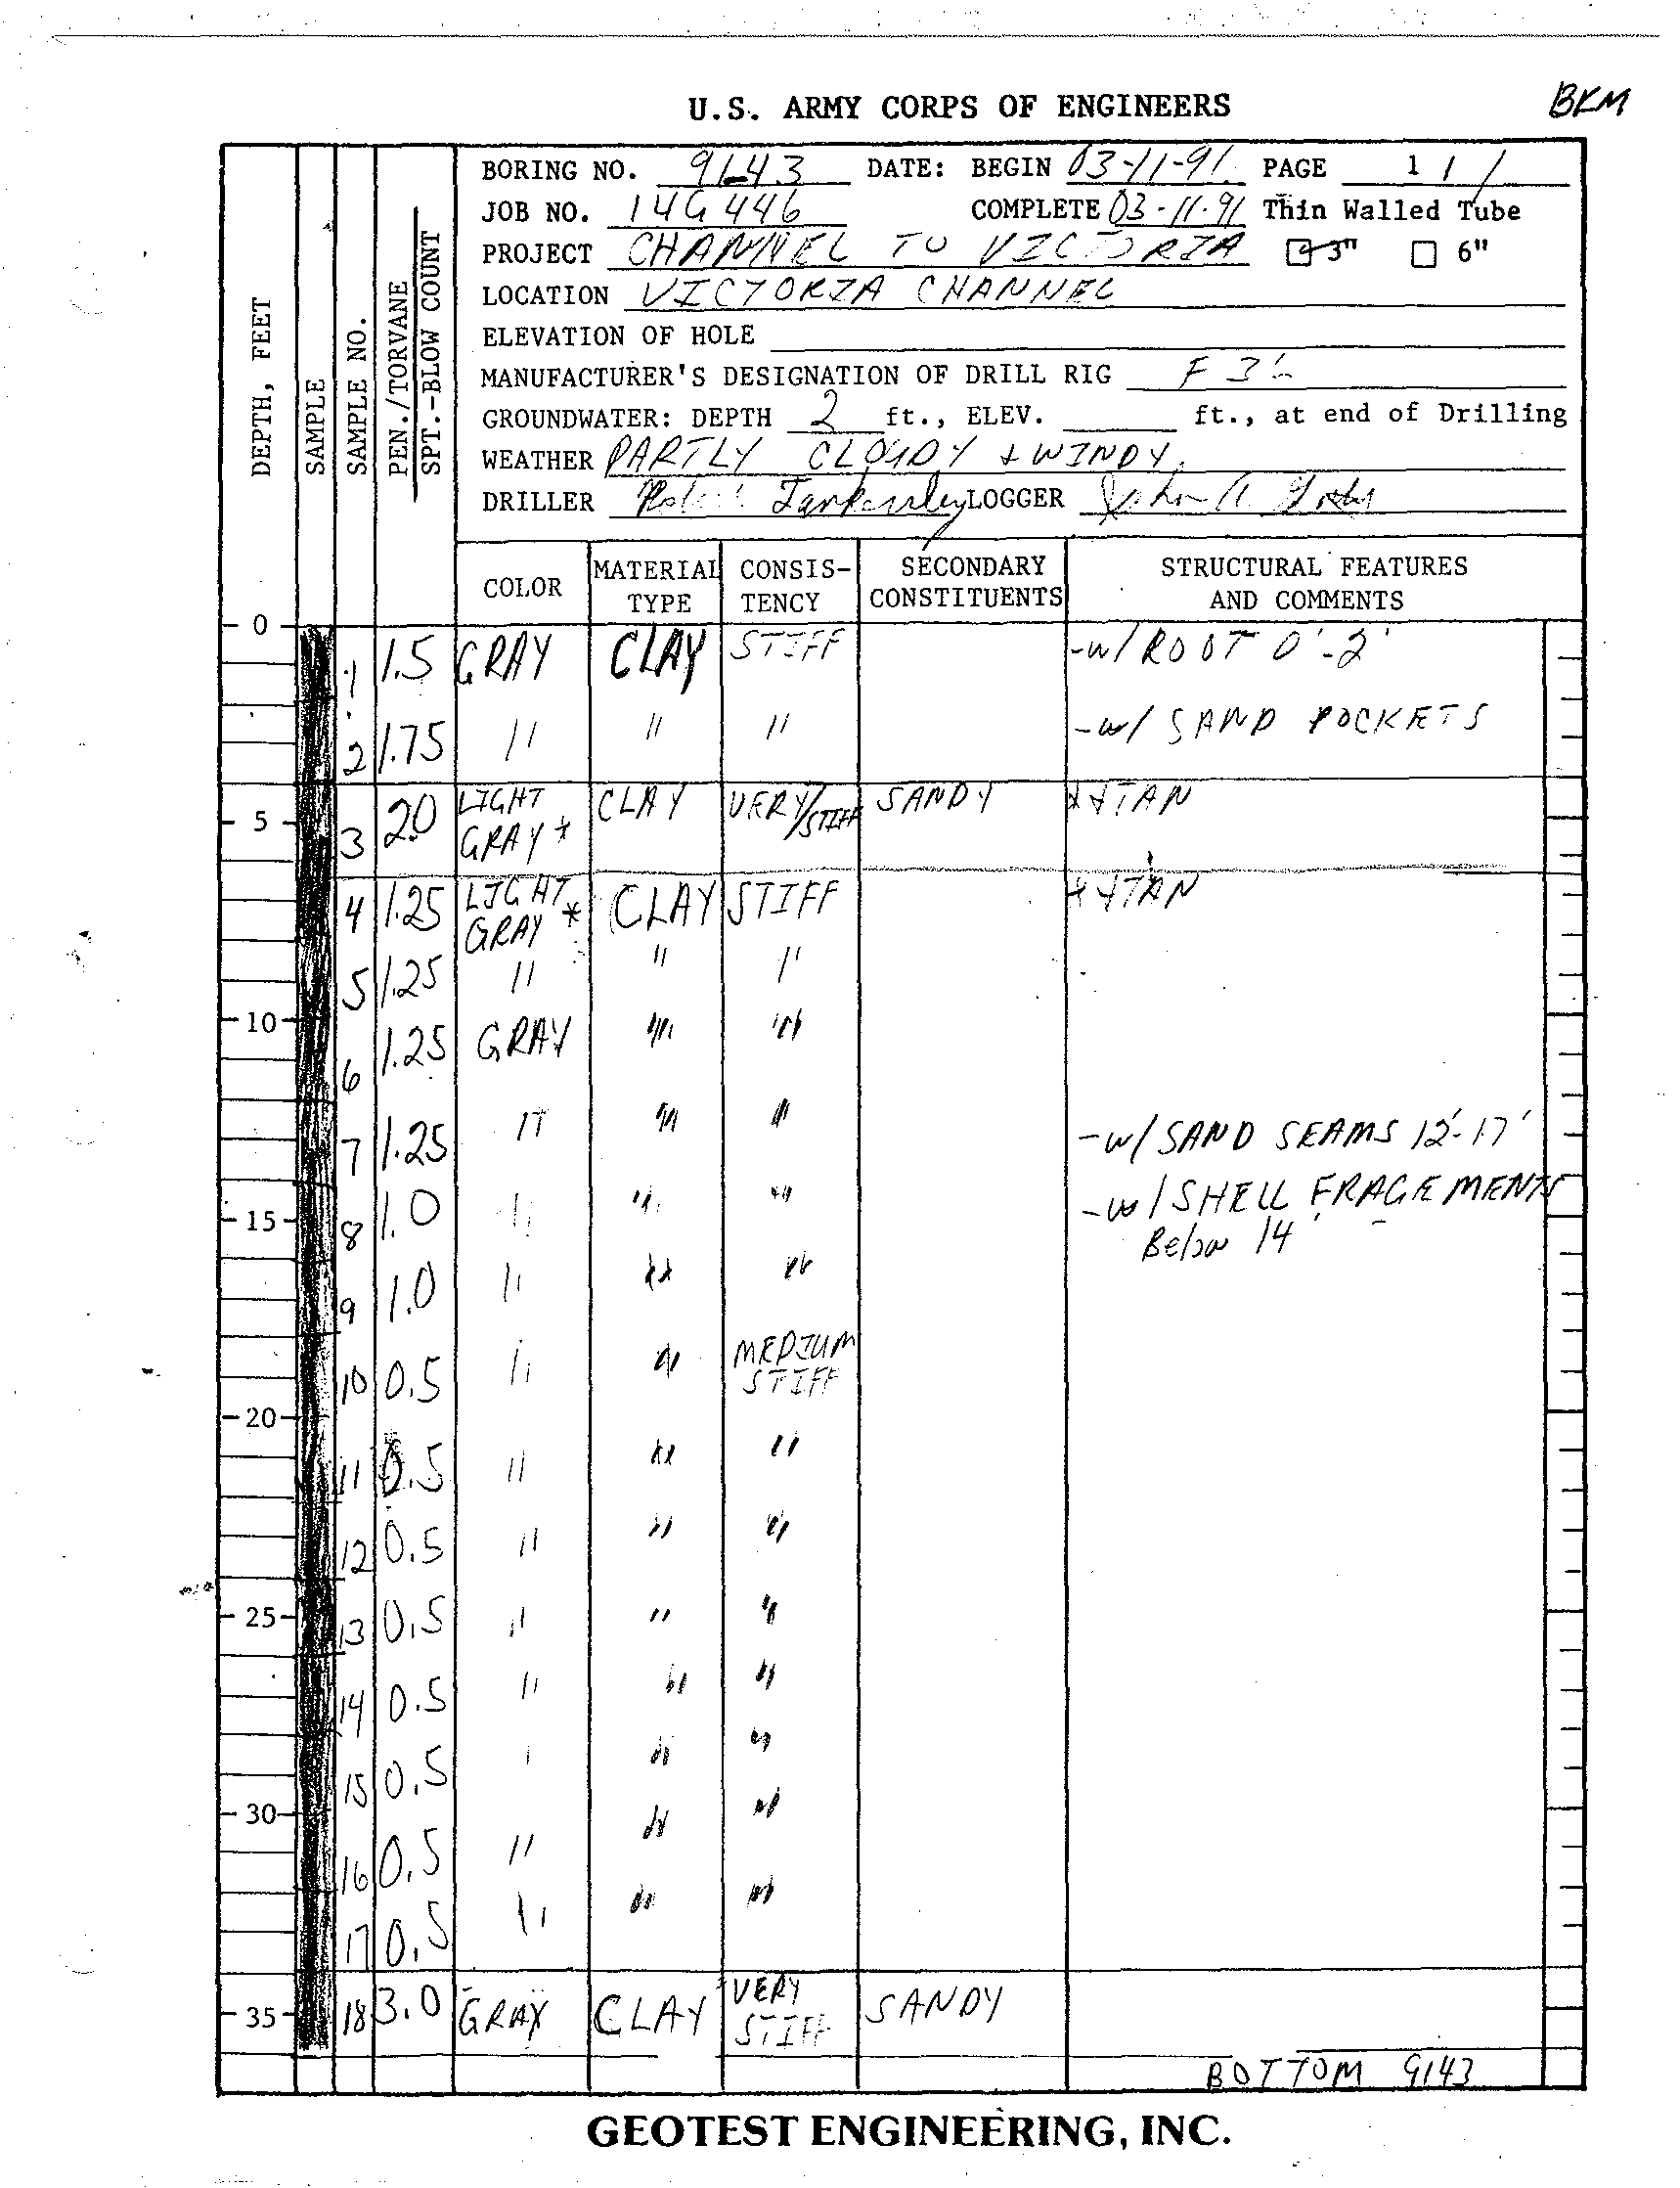 U.S. ARMY CORPS OF ENGINEERS
BKM
BORING NO. 9143 DATE: BEGIN 03-11-91 PAGE 1 / 1
JOB NO. 14G446 COMPLETE 03-11-91 Thin Walled Tube
PROJECT CHANNEL TO VICTORIA 3" 6"
LOCATION VICTORIA CHANNEL
ELEVATION OF HOLE
MANUFACTURER'S DESIGNATION OF DRILL RIG
GROUNDWATER: DEPTH 2 ft., ELEV. ft., at end of Drilling
WEATHER PARTLY CLOUDY + WINDY
DRILLER Tankersley LOGGER John
DEPTH, FEET
SAMPLE
SAMPLE NO.
PEN./TORVANE
SPT.-BLOW COUNT
COLOR MATERIAL TYPE CONSIS-TENCY SECONDARY CONSTITUENTS STRUCTURAL FEATURES AND COMMENTS
0
1 1.5 GRAY CLAY STIFF -w/ ROOT 0'-2'
2 1.75 " " " -w/ SAND POCKETS
5 3 2.0 LIGHT GRAY * CLAY VERY/STIFF SANDY * + TAN
4 1.25 LIGHT GRAY * CLAY STIFF * + TAN
5 1.25 " " "
10
6 1.25 GRAY " "
7 1.25 " " " -w/ SAND SEAMS 12'-17'
15 8 1.0 " " " -w/ SHELL FRAGEMENTS
Below 14'
9 1.0 " " "
10 0.5 " " MEDIUM STIFF
20
11 0.5 " " "
12 0.5 " " "
25 13 0.5 " " "
14 0.5 " " "
15 0.5 " " "
30
16 0.5 " " "
17 0.5 " " "
35 18 3.0 GRAY CLAY VERY STIFF SANDY
BOTTOM 9143
GEOTEST ENGINEERING, INC.